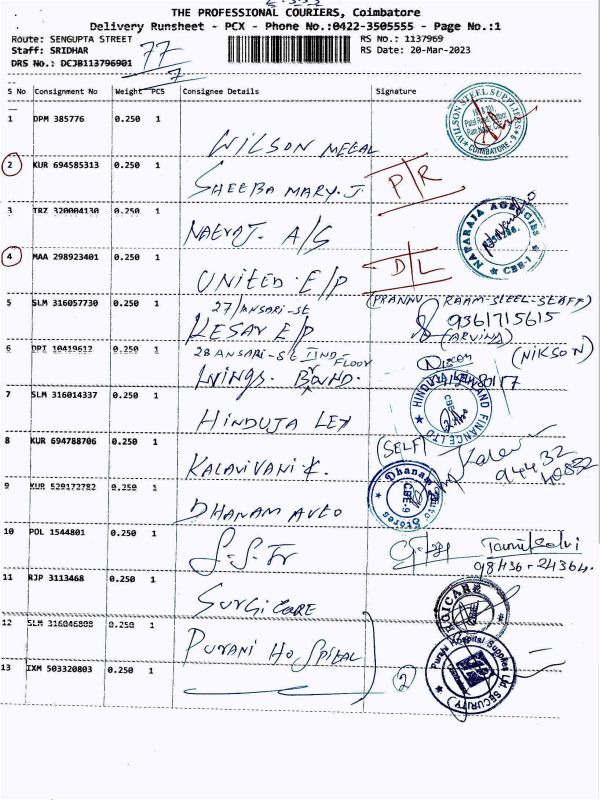 THE PROFESSIONAL COURIERS, Coimbatore
Delivery Runsheet - PCX - Phone No.:0422-3505555 - Page No.:1
Route: SENGUPTA STREET
RS No.: 1137969
Staff: SRIDHAR
RS Date: 20-Mar-2023
DRS No.: DCJB113796901
77
7
S No Consignment No Weight PCS Consignee Details Signature
1 DPM 385776 0.250 1
WILSON STEEL SUPPLIERS
COIMBATORE - 9
WILSON METAL
2 KUR 694585313 0.250 1
SHEEBA MARY. J
P/R
3 TRZ 320004130 0.250 1
NATARAJA AGENCIES
CBE-1
A/S
4 MAA 298923401 0.250 1
UNITED. E/P
D/L
5 SLM 316057730 0.250 1
(PRANNU - RAAM-STEEL-STAFF)
27/ANSARI-ST
KESAV E/P
9361715615
(ARVIND)
6 DPI 10419617 0.250 1
28 ANSARI-ST IIND-FLOOR
(NIKSON)
WINGS. BRAND.
7 SLM 316014337 0.250 1
HINDUJA LEYLAND FINANCE LTD
CBE
HINDUJA LEY
8 KUR 694788706 0.250 1
(SELF)
94432
40832
KALAIVANI K.
9 KUR 529172782 0.250 1
Dhanam Auto Stores
CBE-9
DHANAM AUTO
10 POL 1544801 0.250 1
S-S-Fr
Tamilselvi
98436-24364.
11 RJP 3113468 0.250 1
SURGICARE
12 SLM 316046808 0.250 1
PURANI HOSPITAL
Purani Hospital Supplies Ltd
SECURITY
13 IXM 503320803 0.250 1
2